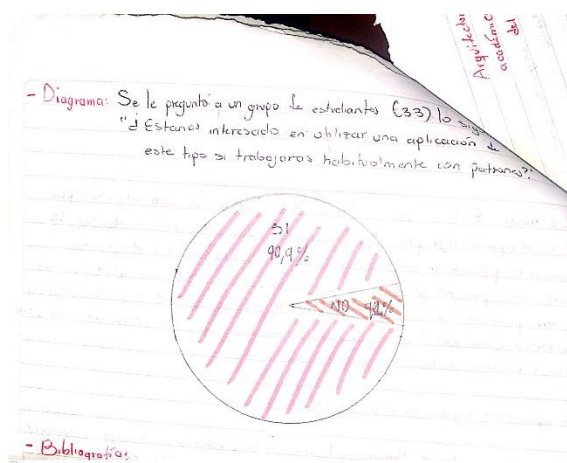 Arquitectur
académic
del
- Diagrama: Se le preguntó a un grupo de estudiantes (33) lo sig
"¿Estarías interesado en utilizar una aplicación de
este tipo si trabajaras habitualmente con patrones?:
SI
90,9%
NO 9,1%
- Bibliografía: